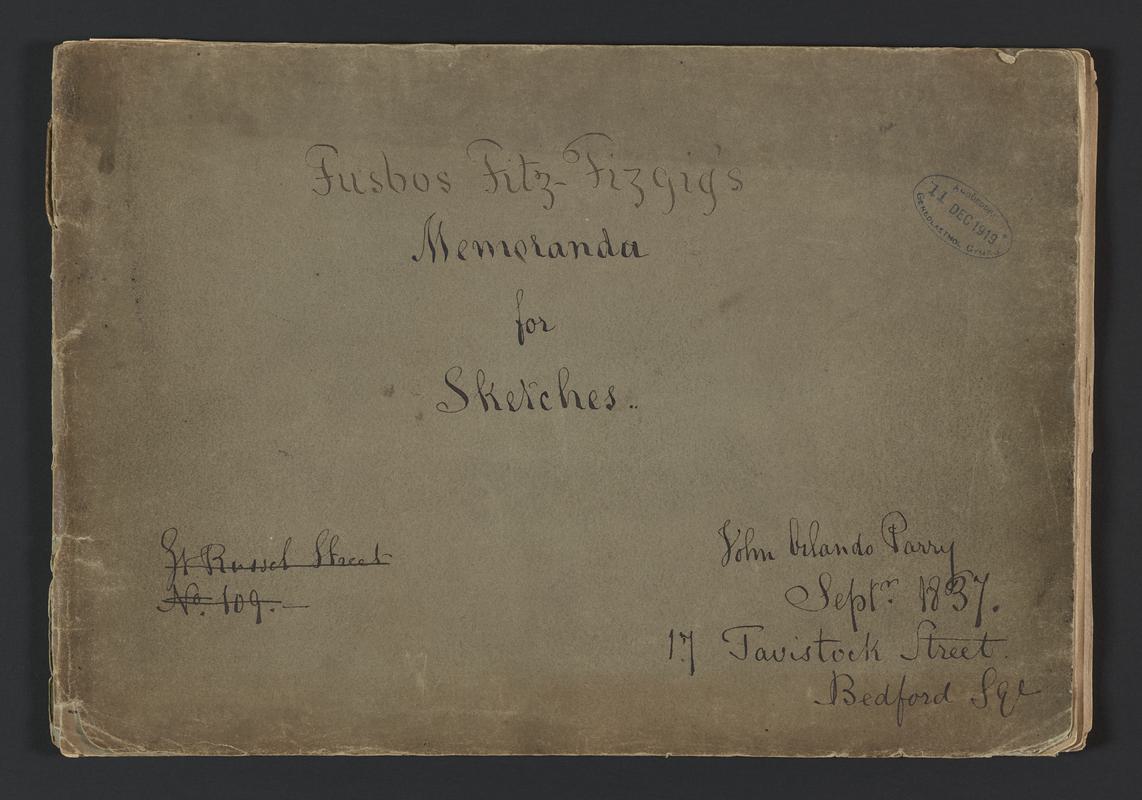 Fusbos Fitz-Fizgig's
Memoranda
for
Sketches..
Amgueddfa
11 DEC 1919
Genedlaethol Cymru
Gt Russel Street
No. 109.—
John Orlando Parry
Septr. 1837.
17 Tavistock Street.
Bedford Sqe